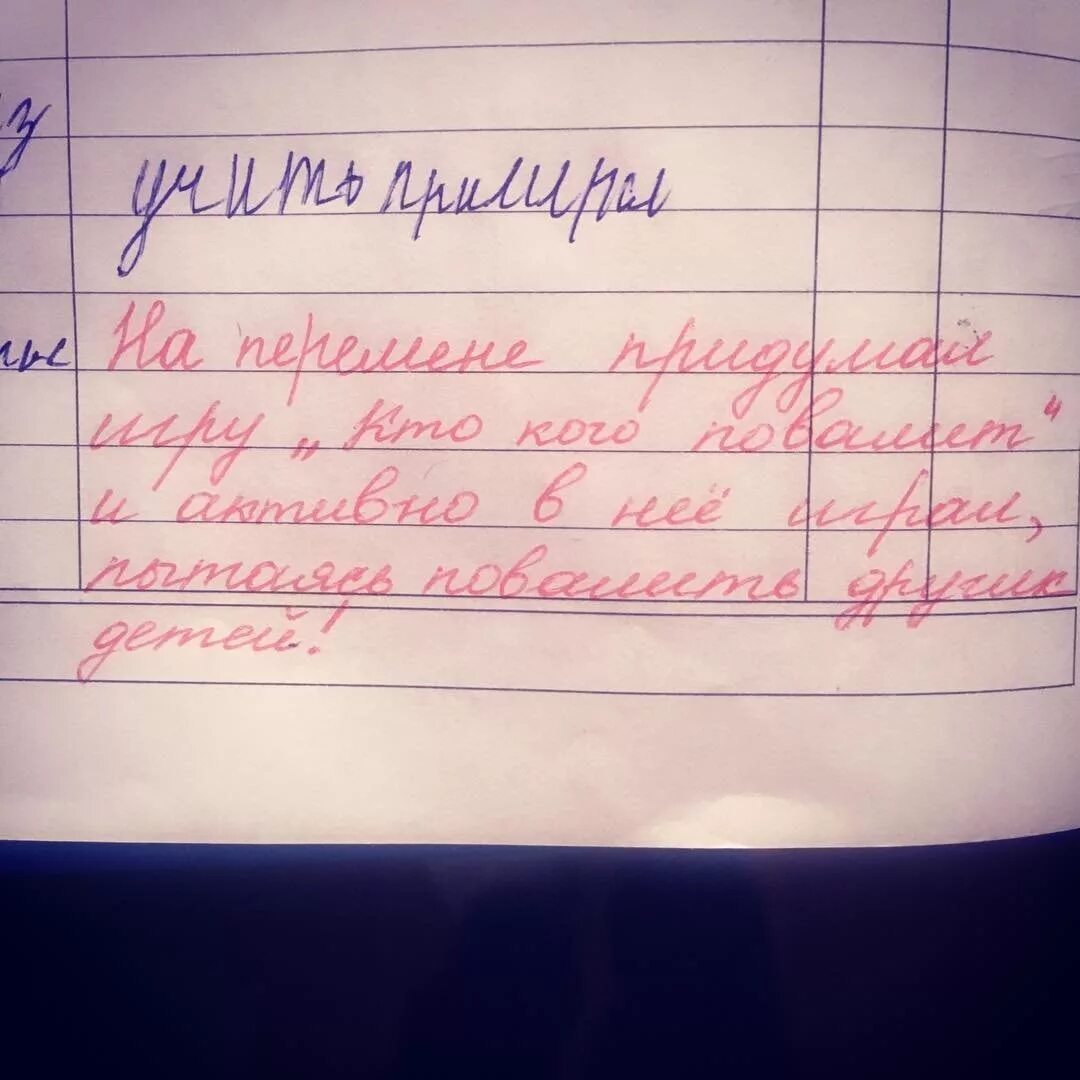 з
учить примеры
На перемене придумал
игру „Кто кого повалит“
и активно в неё играл,
пытаясь повалить других
детей!